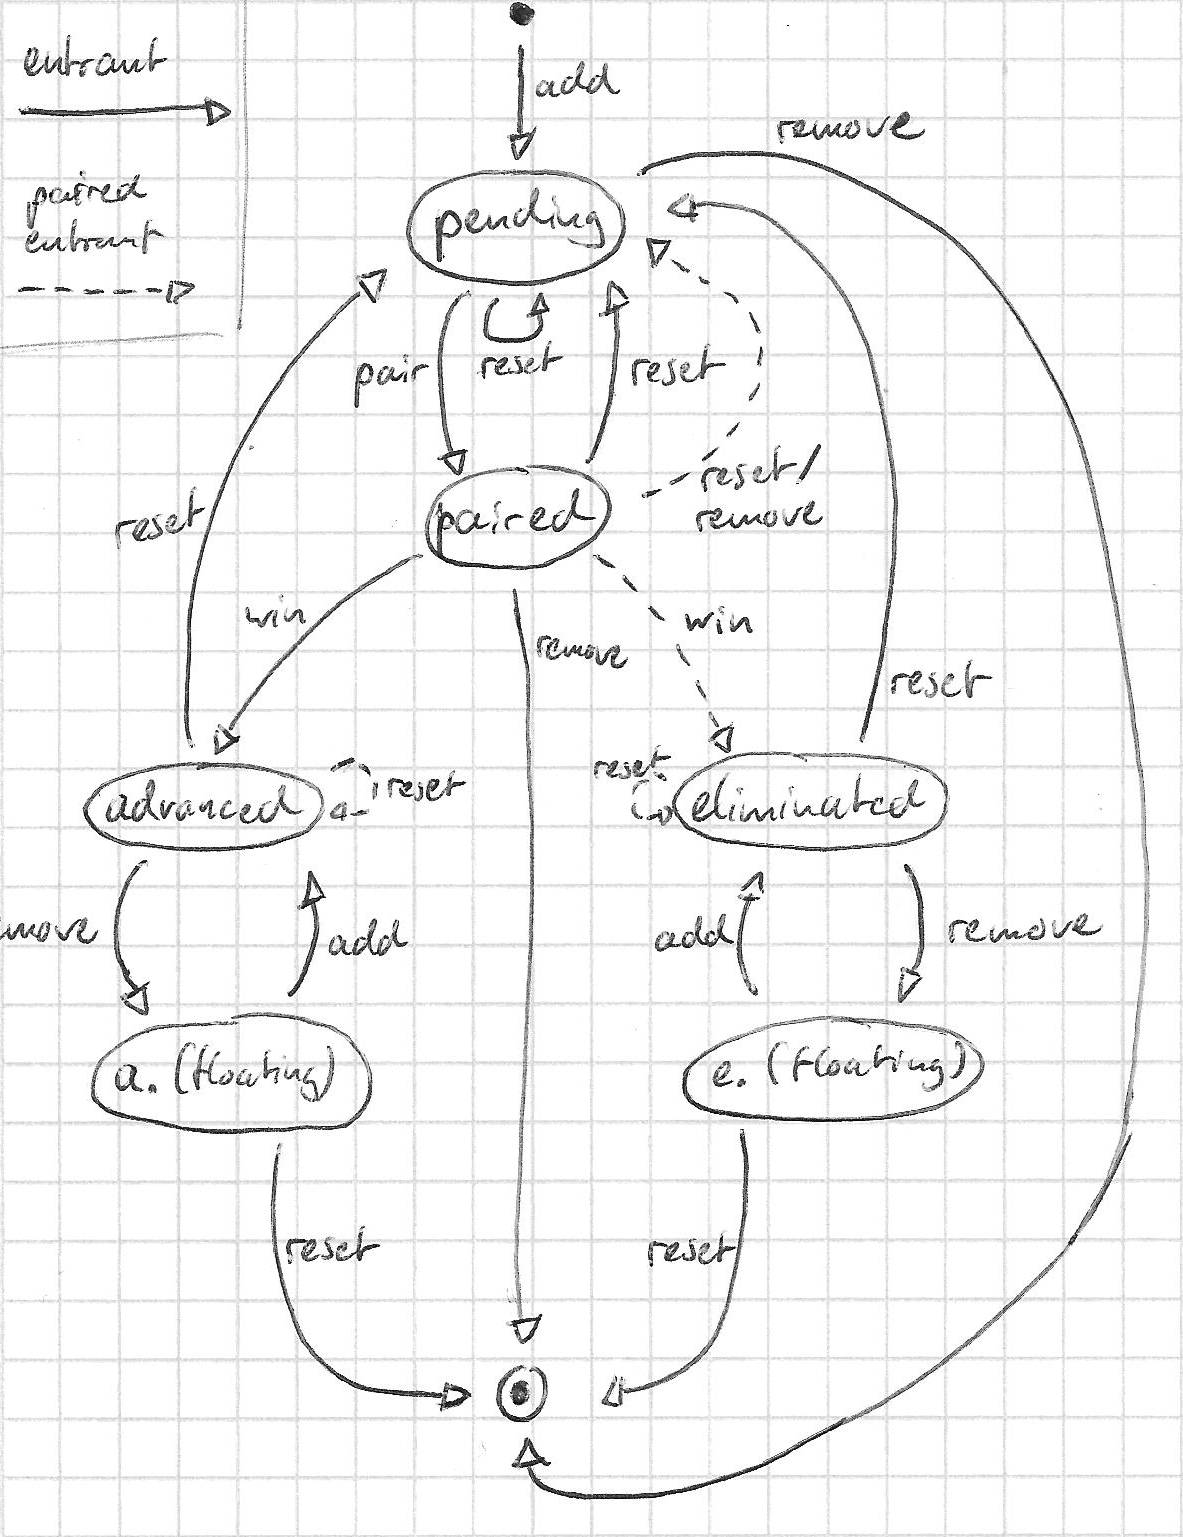 entrant
add
remove
paired
entrant
pending
pair
reset
reset
reset/
remove
reset
paired
win
remove
win
reset
advanced
reset
reset
eliminated
emove
add
add
remove
a. (floating)
e. (floating)
reset
reset